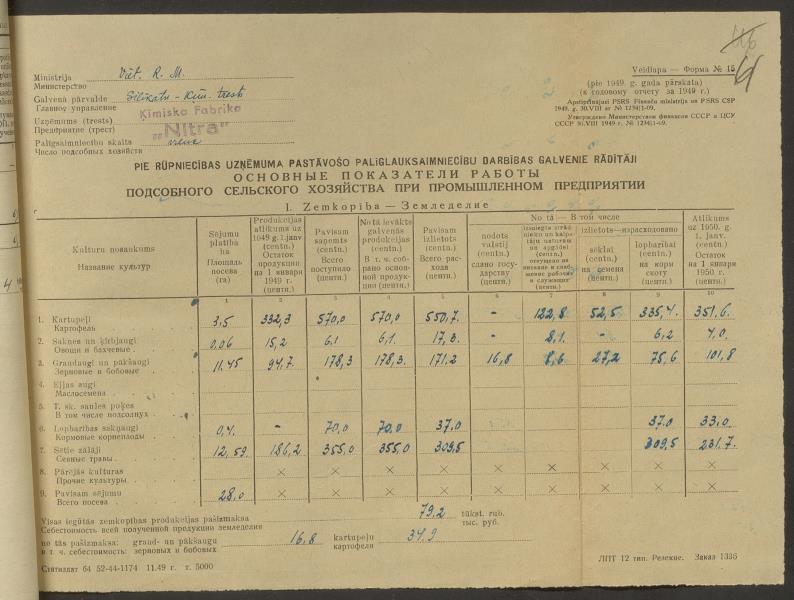 46
4
Veidlapa — Форма № 15
(pie 1949. g. gada pārskata)
(к годовому отчету за 1949 г.)
Apstiprinājusi PSRS Finanču ministrija un PSRS CSP
1949. g. 30.VIII ar № 1234|1-09.
Утверждено Министерством финансов СССР и ЦСУ
СССР 30.VIII 1949 г. № 1234|1-09.
Ministrija Viet. R. M.
Министерство
Galvenā pārvalde Silikātu - Ķīm. trests
Главное управление
Uzņēmums (trests) Ķīmiska Fabrika
Предприятие (трест) „Nitra”
Palīgsaimniecību skaits viena
Число подсобных хозяйств
PIE RŪPNIECĪBAS UZŅĒMUMA PASTĀVOŠO PALĪGLAUKSAIMNIECĪBU DARBĪBAS GALVENIE RĀDĪTĀJI
ОСНОВНЫЕ ПОКАЗАТЕЛИ РАБОТЫ
ПОДСОБНОГО СЕЛЬСКОГО ХОЗЯЙСТВА ПРИ ПРОМЫШЛЕННОМ ПРЕДПРИЯТИИ
I. Zemkopība — Земледелие
Kulturu nosaukums
Название культур
Sējumu platība ha
Площадь посева (га)
Produkcijas atlikums uz 1949 g. 1. janv. (centn.)
Остаток продукции на 1 января 1949 г. (центн.)
Pavisam saņemts (centn.)
Всего поступило (центн.)
No tā ievākts galvenās produkcijas (centn.)
В т. ч. собрано основной продукции (центн.)
Pavisam izlietots (centn.)
Всего расхода (центн.)
No tā — В том числе
nodots valstij (centn.)
сдано государству (центн.)
izlietots—израсходовано
sēklai (centn.)
на семена (центн.)
lopbarībai (centn.)
на корм скоту (центн.)
Atlikums uz 1950. g. 1. janv. (centn.)
Остаток на 1 января 1950 г. (центн.)
1 2 3 4 5 6 7 8 9 10
1. Kartupeļi 3,5 332,3 570,0 570,0 550,7. - 122,8 52,5 335,4. 351,6.
Картофель
2. Saknes un ķirbjaugi 0,06 15,2 6,1 6,1. 17,3. - 8,1. - 6,2 4,0.
Овощи и бахчевые
3. Graudaugi un pākšaugi 11.45 94,7. 178,3 178,3. 171.2 16,8 8,6 27,2 75,6 101,8
Зерновые и бобовые
4. Eļļas augi
Маслосемена
5. T. sk. saules puķes
В том числе подсолнух
6. Lopbarības sakņaugi 0,4. - 70,0 70,0 37,0 37.0 33,0.
Кормовые корнеплоды
7. Sētie zālāji 12,59. 186,2 355,0 355,0 309,5 309,5 231.7.
Сеяные травы
8. Pārējās kulturas × × × × × × × × ×
Прочие культуры
9. Pavisam sējumu 28,0 × × × × × × × × ×
Всего посева
Visas iegūtās zemkopības produkcijas pašizmaksa 79,2 tūkst. rub.
Себестоимость всей полученной продукции земледелия тыс. руб.
no tās pašizmaksa: graud- un pākšaugu 16,8 kartupeļu 34,9
в т. ч. себестоимость: зерновых и бобовых картофеля
Статиздат 64 52-44-1174 11.49 г. т. 5000
ЛПТ 12 тип. Резекне. Заказ 1336